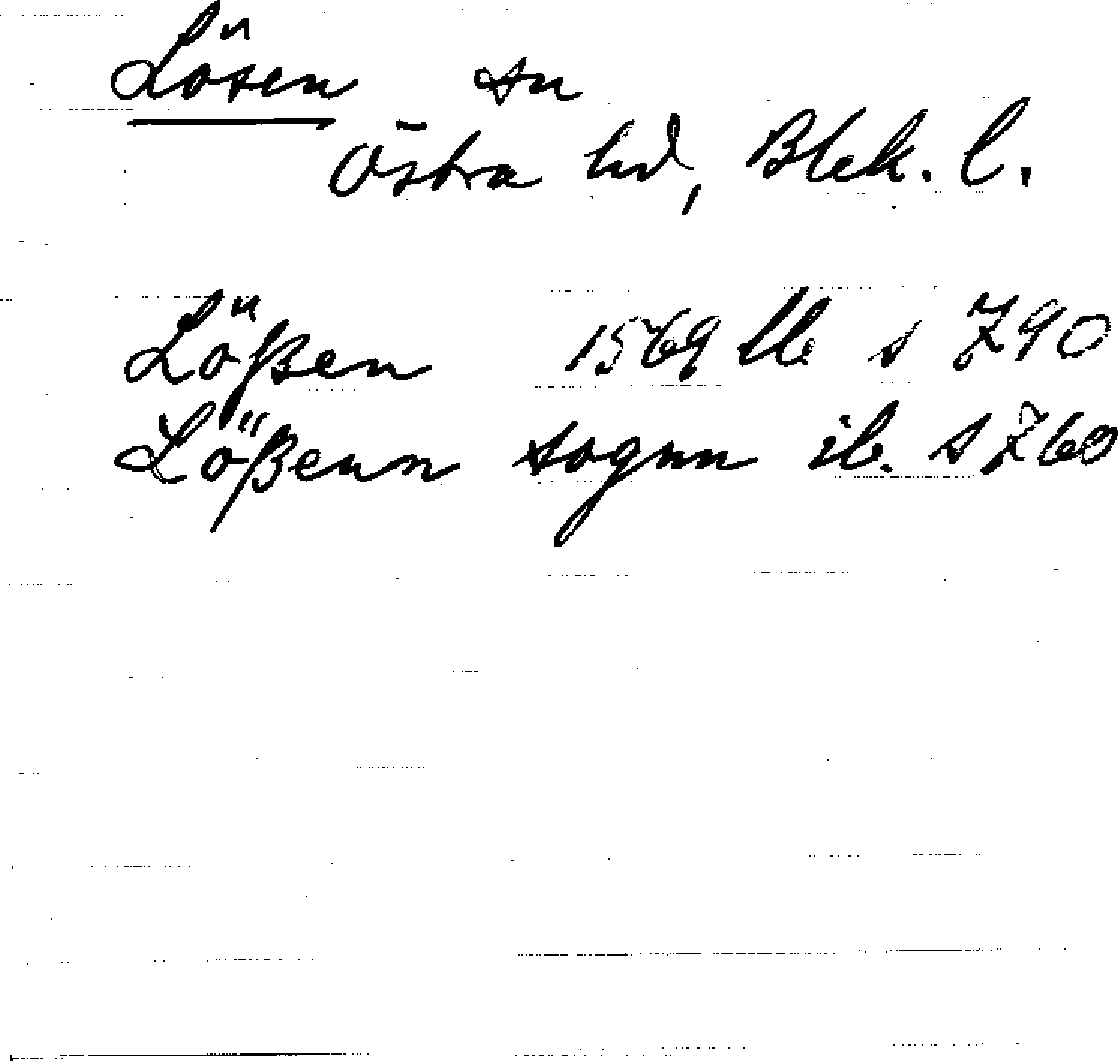 Lösen sn
Östra hd, Blek. l.
Lößen 1569 Llb s 790
Lößenn sognn ib. s 760